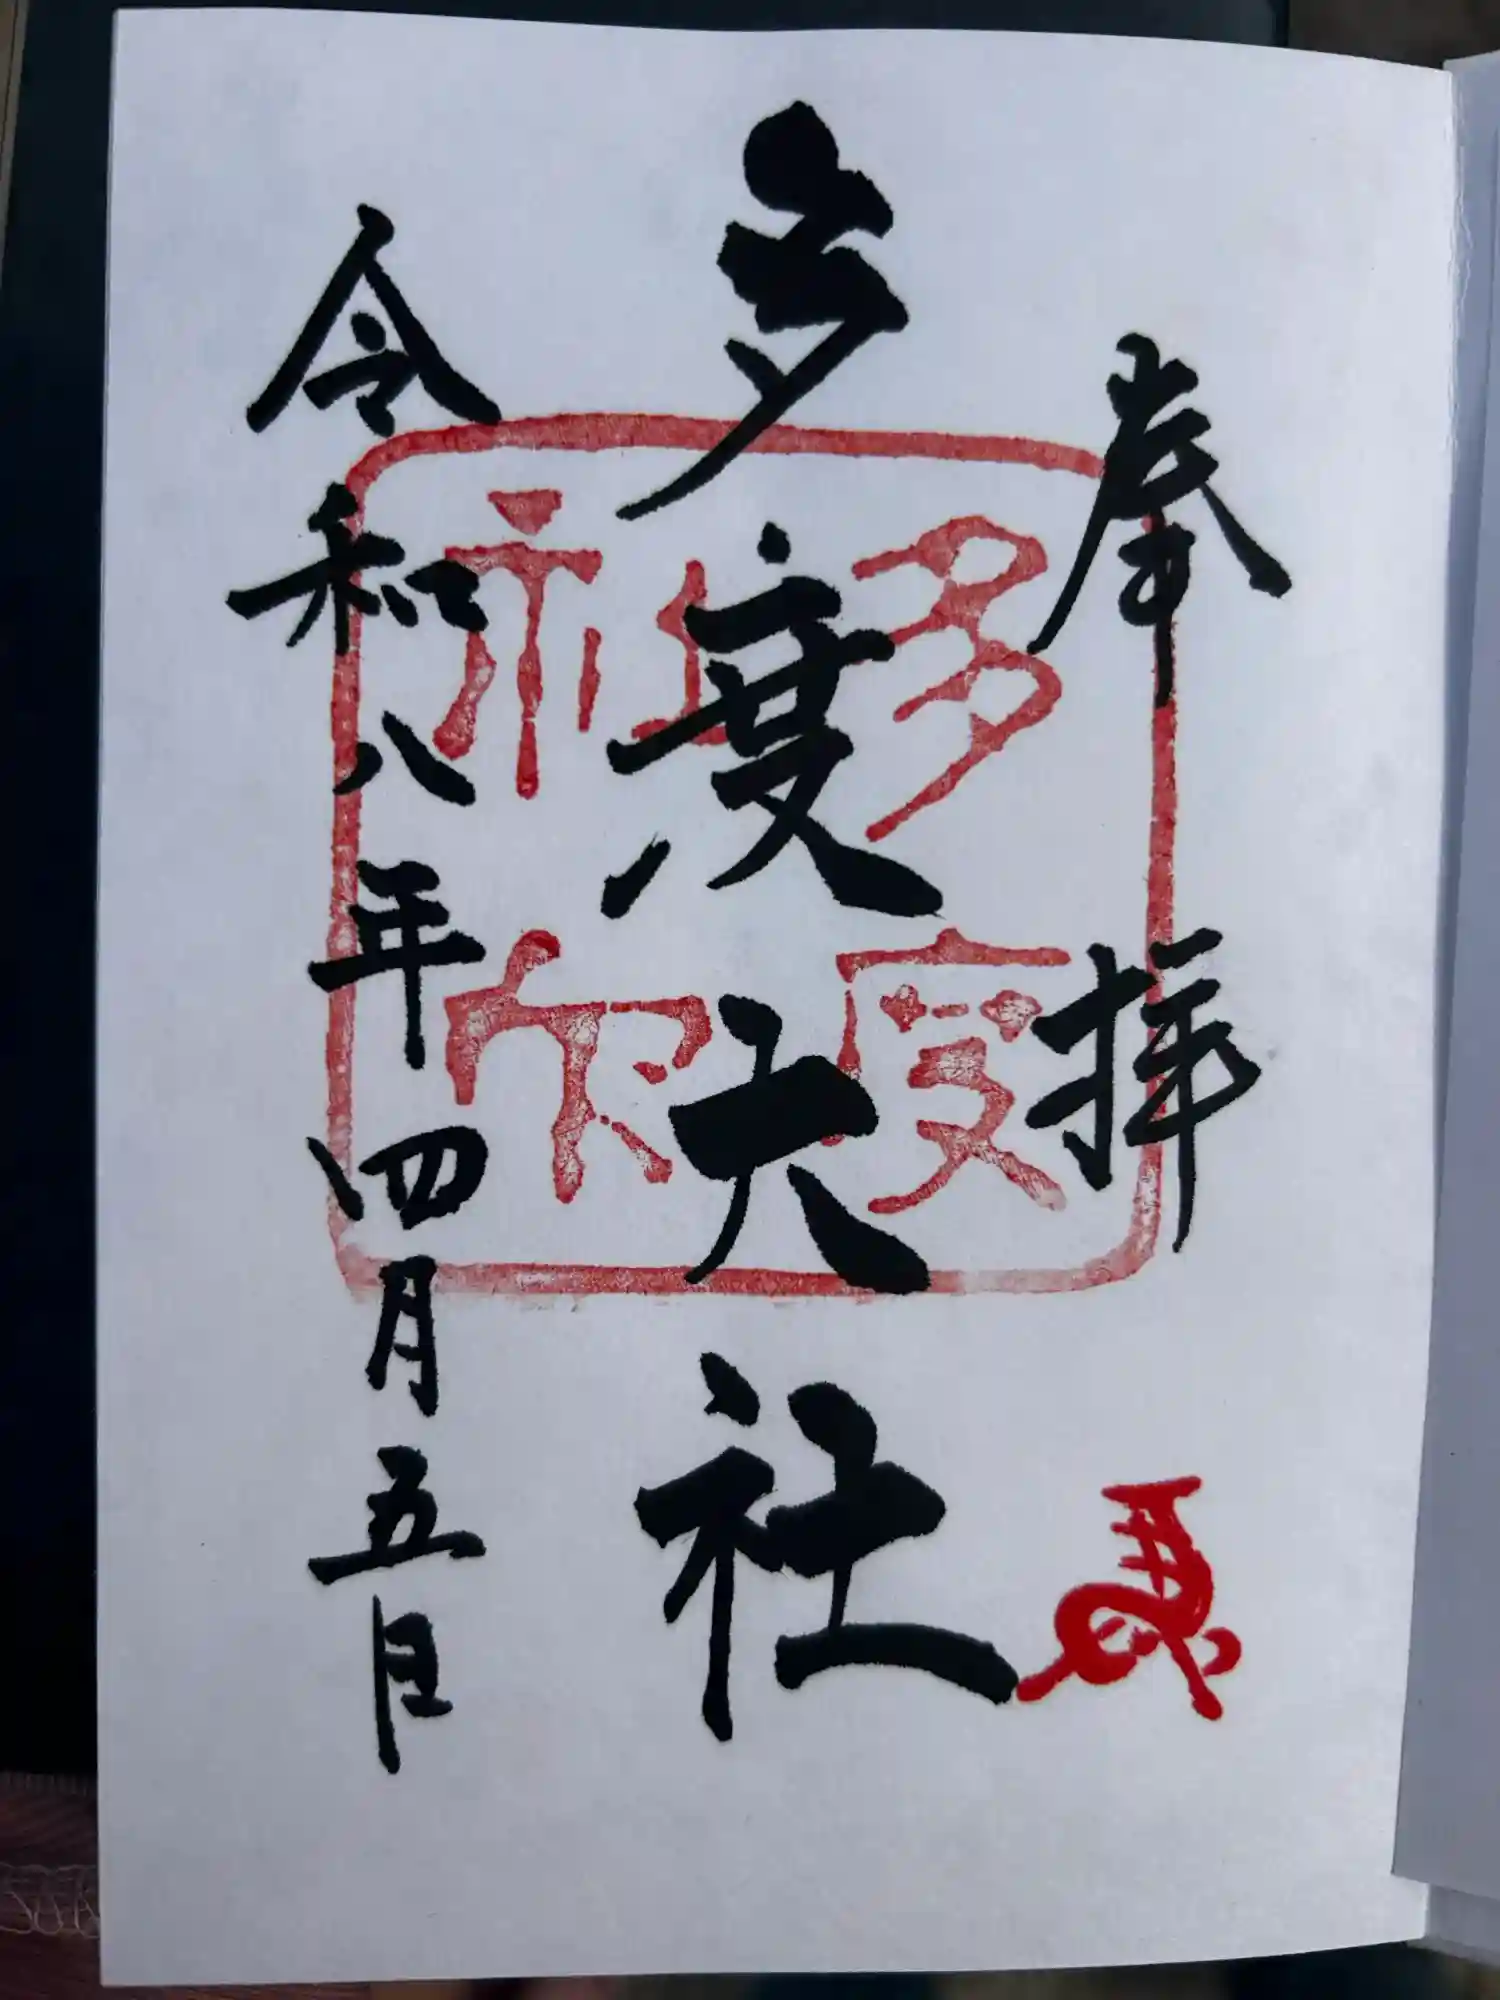 奉拝
多度大社
多度
社印
令和八年四月五日